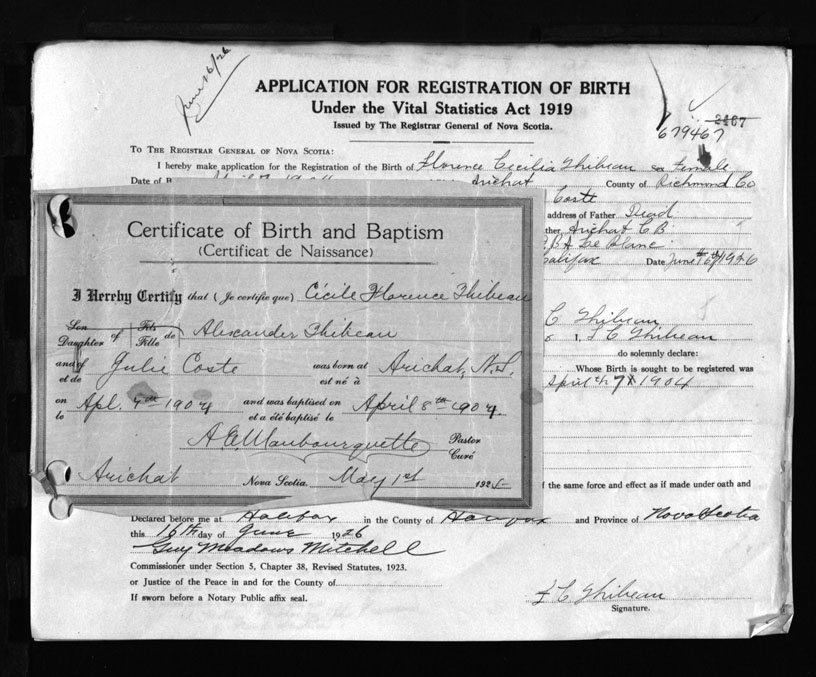 June 16/26
APPLICATION FOR REGISTRATION OF BIRTH
Under the Vital Statistics Act 1919
Issued by The Registrar General of Nova Scotia.
2467
679467
TO THE REGISTRAR GENERAL OF NOVA SCOTIA:
I hereby make application for the Registration of the Birth of Florence Cecilia Thibeau sex Female
Date of B Arichat County of Richmond Co
Coste
address of Father Dead
ther Arichat C.B
Le Blanc
Halifax Date June 16th/1926
C Thibeau
I, F C Thibeau
do solemnly declare:
Whose Birth is sought to be registered was
April 7th 1904
f the same force and effect as if made under oath and
Certificate of Birth and Baptism
(Certificat de Naissance)
I Hereby Certify that (Je certifie que) Cécile Florence Thibeau
Son Fils
Daughter of Fille de Alexander Thibeau
and of Julie Coste was born at Arichat, N.S.
et de est né à
on Apl. 7th 1904 and was baptised on April 8th 1904
le et a été baptisé le
Pastor
Curé
Arichat Nova Scotia. May 1st 192
Declared before me at Halifax in the County of Halifax and Province of Nova Scotia
this 16th day of June 1926
Guy Meadows Mitchell
Commissioner under Section 5, Chapter 38, Revised Statutes, 1923.
or Justice of the Peace in and for the County of
If sworn before a Notary Public affix seal.
F C Thibeau
Signature.